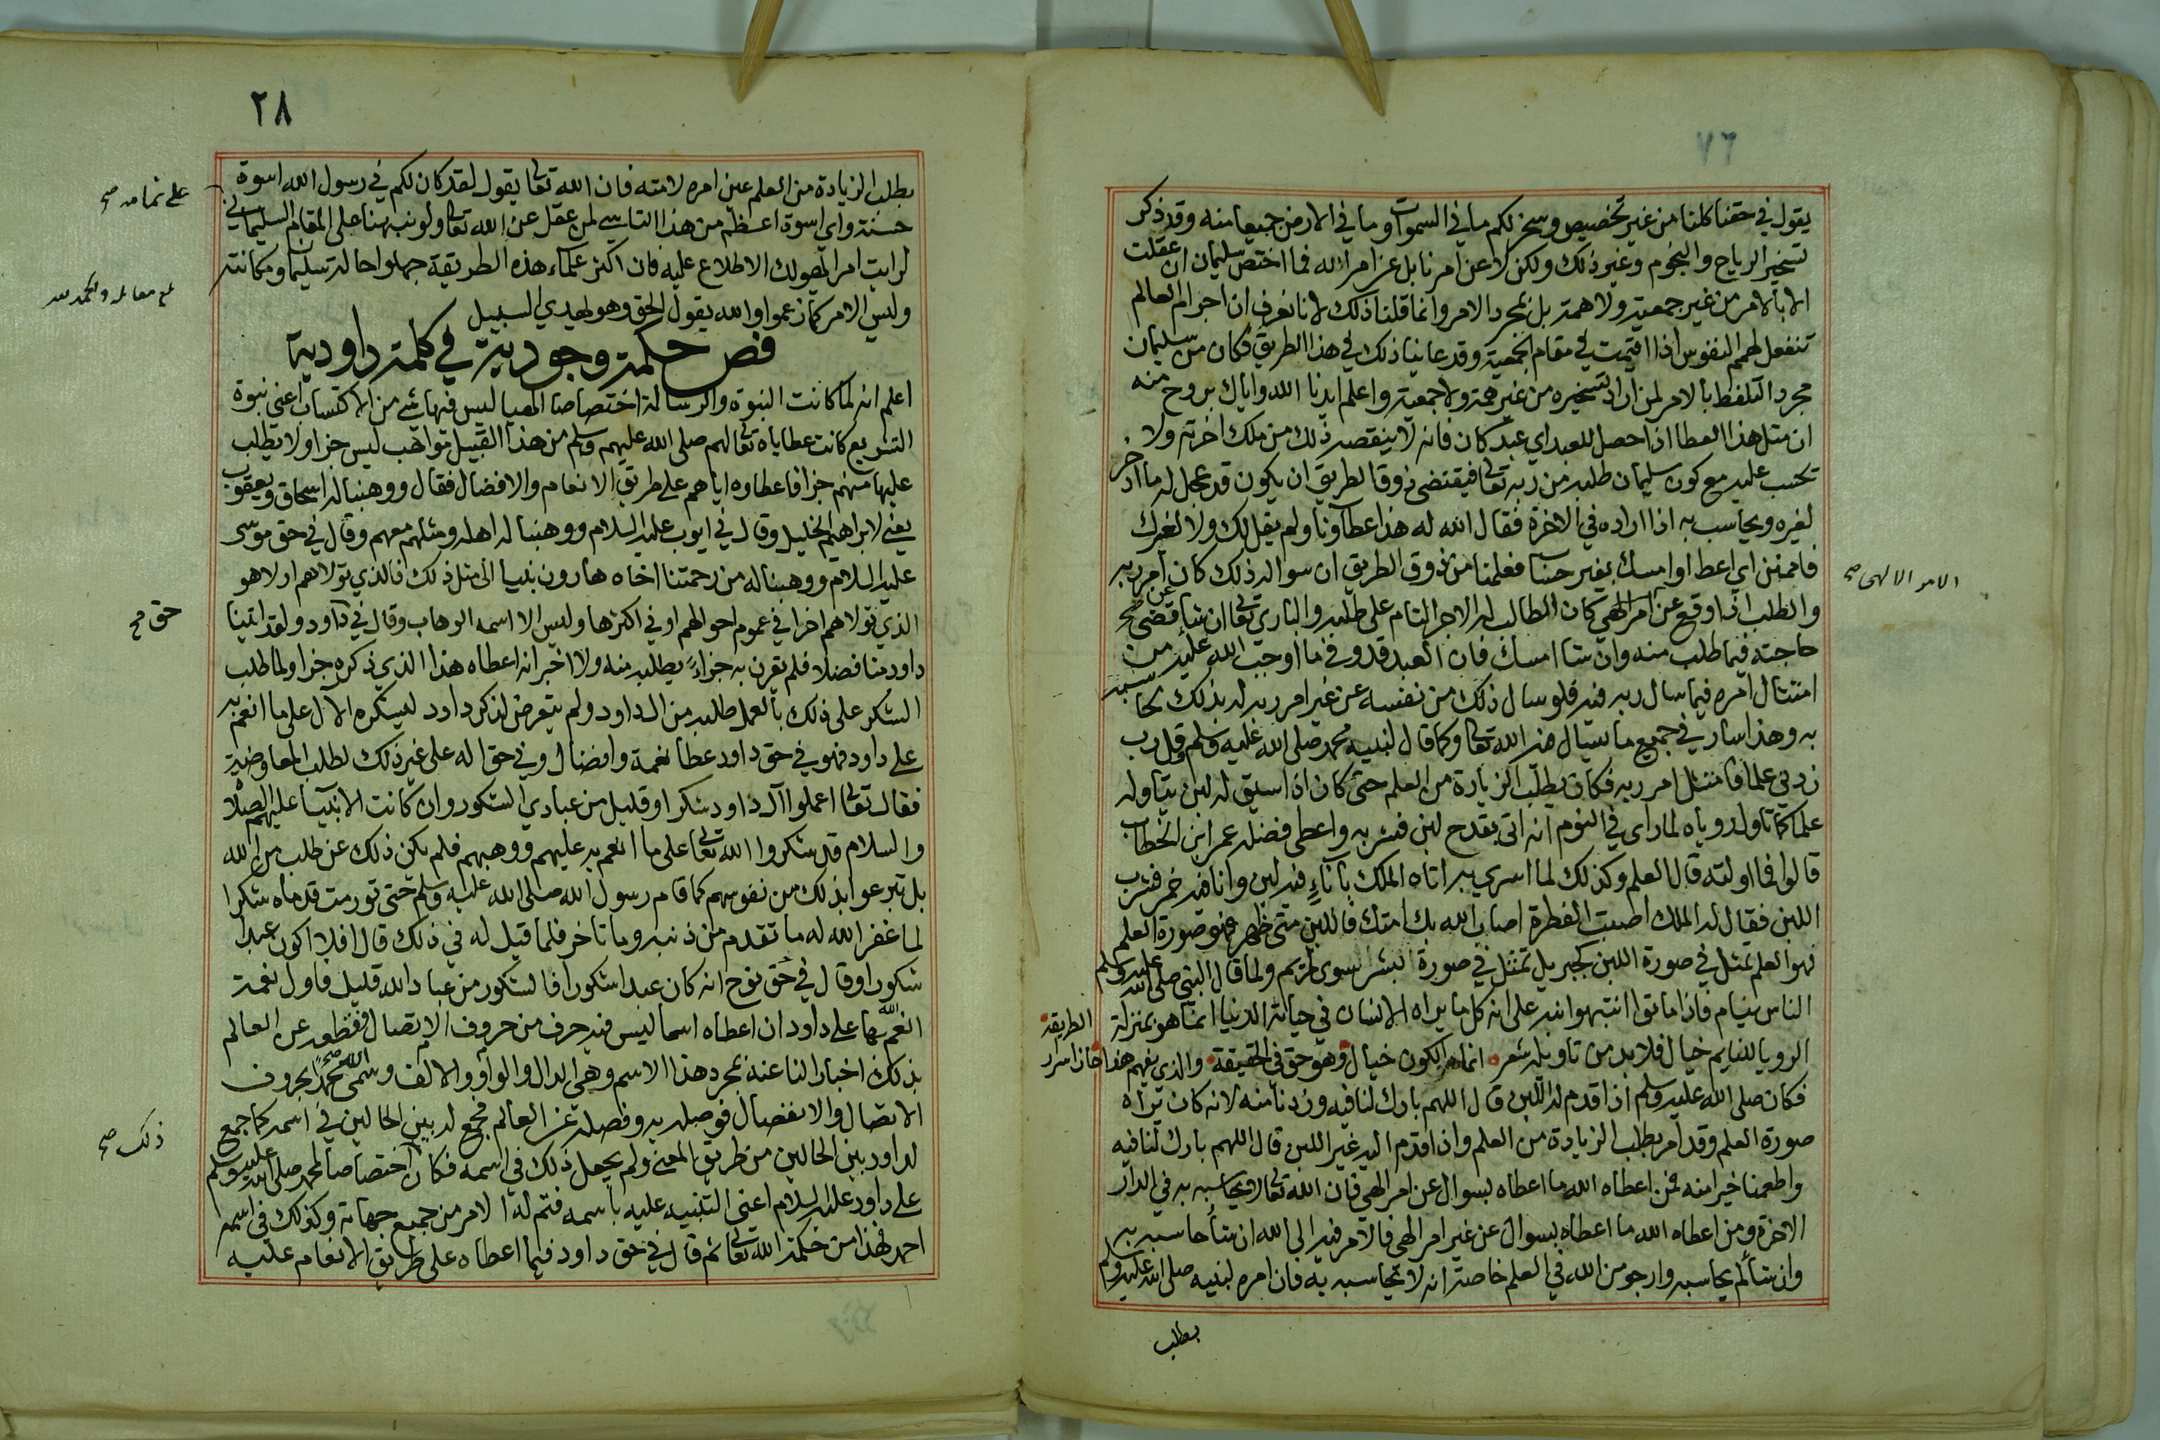 يقول في حقنا كلنا من غير تخصيص وسخر لكم ما في السموات وما في الارض جميعا منه وقد ذكر
تسخير الرياح والنجوم وغير ذلك ولكن لا عن امرنا بل عن امر الله فما اختص سليمان ان عقلت
الا بالامر من غير جمعية ولا همة بل بمجرد الامر وانما قلنا ذلك لانا نعرف ان اجرام العالم
تنفعل لهمم النفوس اذا اقيمت في مقام الجمعية وقد عاينا ذلك في هذا الطريق فكان من سليمان
مجرد التلفظ بالامر لمن اراد تسخيره من غير همة ولا جمعية واعلم ايدنا الله واياك بروح منه
ان مثل هذا العطا اذا حصل للعبد اي عبد كان فانه لا ينقصه ذلك من ملك اخرته ولا
تحسب عليه مع كون سليمان طلبه من ربه تعالى فيقتضي ذوق الطريق ان يكون قد عجل له ما ادخر
لغيره ويحاسب به اذا اراده في الاخرة فقال الله له هذا عطاؤنا ولم يقل لك ولا لغيرك
فامنن اي اعط او امسك بغير حساب فعلمنا من ذوق الطريق ان سواله ذلك كان عن امر ربه
والطلب اذا وقع عن امر الهي كان الطالب له الاجر التام على طلبه والباري تعالى ان شا قضى
حاجته فيما طلب منه وان شا امسك فان العبد قد وفى ما اوجب الله عليه من
امتثال امره فيما سال ربه فيه فلو سال ذلك من نفسه عن غير امر ربه له بذلك لحاسبه
به وهذا سار في جميع ما يسال فيه الله تعالى وكما قال لنبيه محمد صلى الله عليه وسلم وقل رب
زدني علما فامتثل امر ربه فكان يطلب الزيادة من العلم حتى كان اذا سيق له لبن يتاوله
علما كما تاول روياه لما راى في النوم انه اتي بقدح لبن فشربه واعطى فضله عمر ابن الخطاب
قالوا فما اولته قال العلم وكذلك لما اسري به اتاه الملك باناءٍ فيه لبن وانا فيه خمر فشرب
اللبن فقال له الملك اصبت الفطرة اصاب الله بك امتك فاللبن متى ظهر فهو صورة العلم
فهو العلم تمثل في صورة اللبن كجبريل تمثل في صورة بشر سوى لمريم ولما قال النبي صلى الله عليه وسلم
الناس نيام فاذا ماتوا انتبهوا نبه على انه كل ما يراه الانسان في حياته الدنيا انما هو بمنزلة
الرويا للنايم خيال فلا بد من تاويله شعر انما الكون خيال وهو حق في الحقيقة والذي يفهم هذا حاز اسرار الطريقة
فكان صلى الله عليه وسلم اذا قدم له اللبن قال اللهم بارك لنا فيه وزدنا منه لانه كان يراه
صورة العلم وقد امر بطلب الزيادة من العلم واذا قدم اليه غير اللبن قال اللهم بارك لنا فيه
واطعمنا خيرا منه فمن اعطاه الله ما اعطاه بسوال عن امر الهي فان الله تعالى لا يحاسبه به في الدار
الاخرة ومن اعطاه الله ما اعطاه بسوال عن غير امر الهي فالامر فيه الى الله ان شأ حاسبه به
وان شا لم يحاسبه وارجو من الله في العلم خاصة انه لا يحاسبه به فان امره لنبيه صلى الله عليه وسلم
بطلب
الامر الالهي صح
٢٨
بطلب الزيادة من العلم عين امره لامته فان الله تعالى يقول لقد كان لكم في رسول الله اسوة
حسنة واي اسوة اعظم من هذا التاسي لمن عقل عن الله تعالى ولو نبهنا على المقام السليماني
لرايت امرا يهولك الاطلاع عليه فان اكثر علماء هذه الطريقة جهلوا حالة سليمان ومكانته
وليس الامر كما زعموا والله يقول الحق وهو يهدي السبيل
فص حكمة وجودية في كلمة داودية
اعلم انه لما كانت النبوة والرسالة اختصاصا الهيا ليس فيها شي من الاكتساب اعني نبوة
التشريع كانت عطاياه تعالى لهم صلى الله عليهم وسلم من هذا القبيل مواهب ليس جزا ولا يطلب
عليها منهم جزا فاعطاوه اياهم على طريق الانعام والافضال فقال ووهبنا له اسحاق ويعقوب
يعني لابراهيم الخليل وقال في ايوب عليه السلام ووهبنا له اهله ومثلهم معهم وقال في حق موسى
عليه السلام ووهبنا له من رحمتنا اخاه هارون نبيا الى مثل ذلك فالذي تولاهم اولا هو
الذي تولاهم اخرا في عموم احوالهم او في اكثرها وليس الا اسمه الوهاب وقال في داود ولقد اتينا
داود منا فضلا فلم يقرن به جزاءً يطلبه منه ولا اخبر انه اعطاه هذا الذي ذكره جزا ولما طلب
الشكر على ذلك بالعمل طلبه من ال داود ولم يتعرض لذكر داود ليشكره الال على ما انعم به
على داود فهو في حق داود عطا نعمة وافضال وفي حق اله على غير ذلك لطلب المعاوضة
فقال تعالى اعملوا آل داود شكرا وقليل من عبادي الشكور وان كانت الانبيا عليهم الصلاة
والسلام قد شكروا الله تعالى على ما انعم به عليهم ووهبهم فلم يكن ذلك عن طلب من الله
بل تبرعوا بذلك من نفوسهم كما قام رسول الله صلى الله عليه وسلم حتى تورمت قدماه شكرا
لما غفر الله له ما تقدم من ذنبه وما تاخر فلما قيل له في ذلك قال افلا اكون عبدا
شكورا وقال في حق نوح انه كان عبدا شكورا فالشكور من عباد الله قليل فاول نعمة
انعم الله بها على داود ان اعطاه اسما ليس فيه حرف من حروف الاتصال فقطعه عن العالم
بذلك اخبارا لنا عنه بمجرد هذا الاسم وهي الدال والواو والالف وسمى الله محمدا بحروف
الاتصال والانفصال فوصله به وفصله عن العالم فجمع له بين الحالين في اسمه كما جمع
لداود بين الحالين من طريق المعنى ولم يجعل ذلك في اسمه فكان اختصاصا لمحمد صلى الله عليه وسلم
على داود عليه السلام اعني التنبيه عليه باسمه فتم له الامر من جميع جهاته وكذلك في اسمه
احمد فهذا من حكمة الله تعالى ثم قال في حق داود فيما اعطاه على طريق الانعام عليه
على تمامه صح
حق صح
ذلك صح